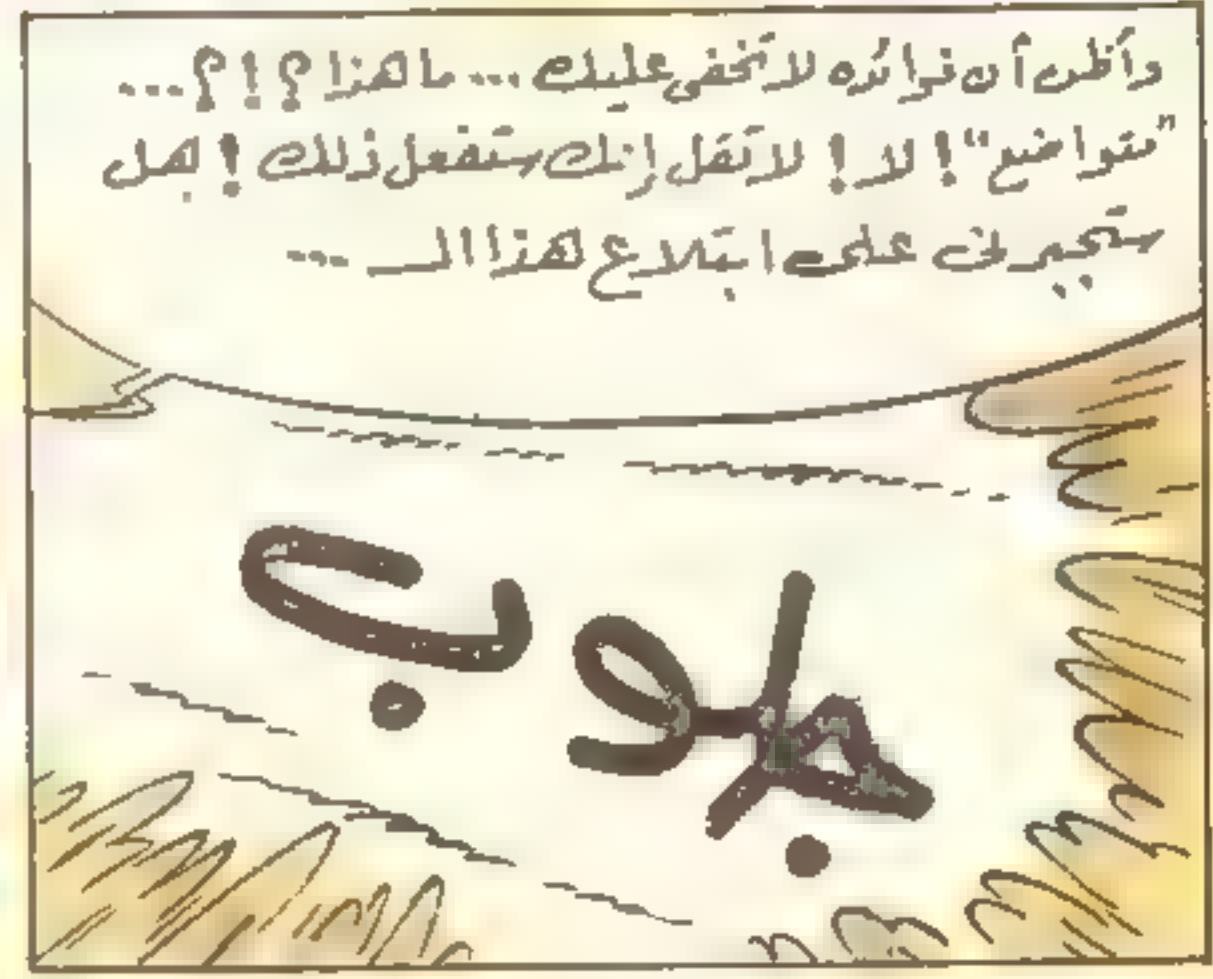 وأظن أن فوائده لا تخفى عليك ... ما هذا ؟ ! ؟ ...
"متواضع" ! لا ! لا تقل إنك ستفعل ذلك ! هل
ستجبرنى على ابتلاع هذا الـ ...
جلوب